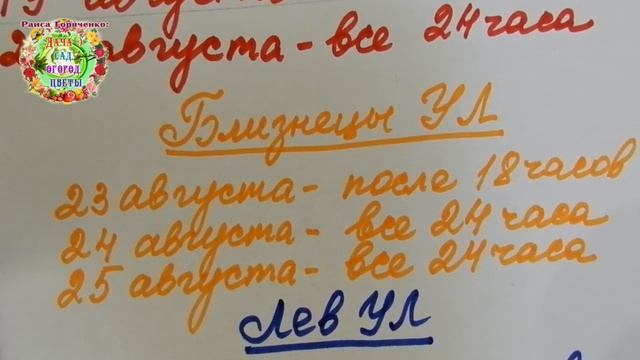 Раиса Горяченко:
ДАЧА
САД
ОГОРОД
ЦВЕТЫ
августа - все 24 часа
Близнецы УЛ
23 августа - после 18 часов
24 августа - все 24 часа
25 августа - все 24 часа
Лев УЛ